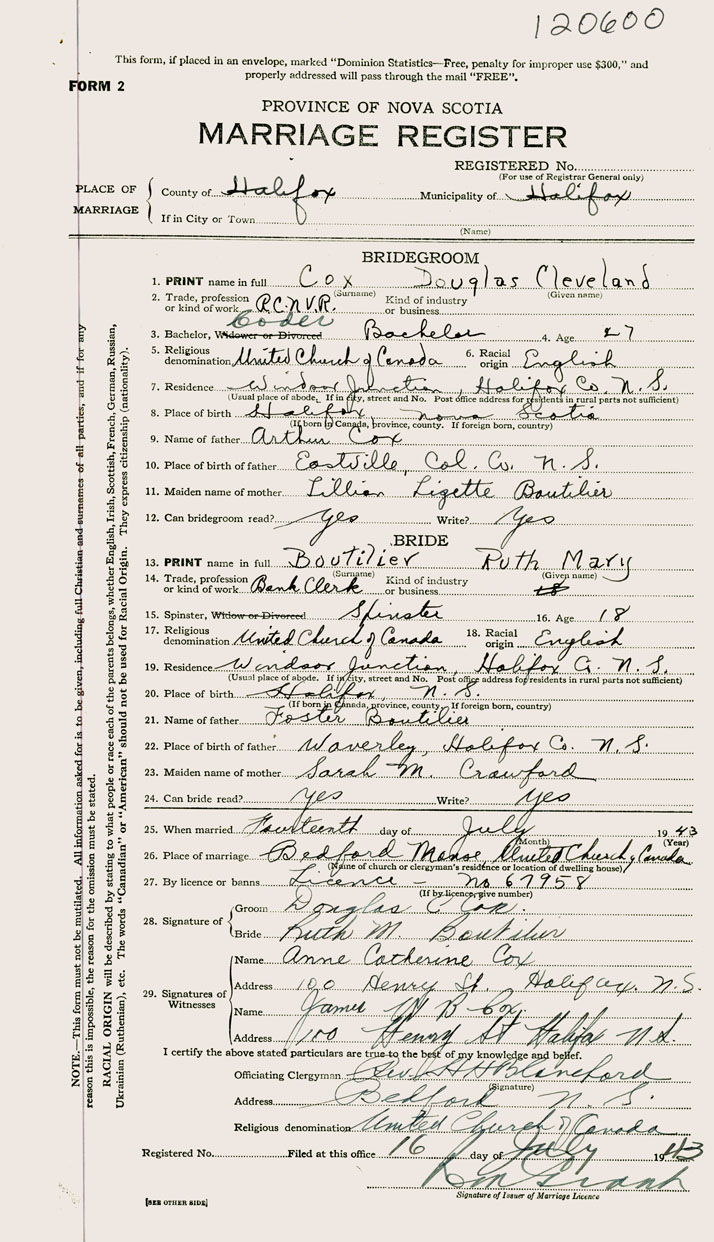 120600
This form, if placed in an envelope, marked "Dominion Statistics—Free, penalty for improper use $300," and
properly addressed will pass through the mail "FREE".
FORM 2
PROVINCE OF NOVA SCOTIA
MARRIAGE REGISTER
REGISTERED No.
(For use of Registrar General only)
PLACE OF MARRIAGE
County of Halifax Municipality of Halifax
If in City or Town
(Name)
BRIDEGROOM
1. PRINT name in full Cox Douglas Cleveland
(Surname) (Given name)
2. Trade, profession or kind of work R.C.N.V.R. Kind of industry or business
Coder
3. Bachelor, Widower or Divorced Bachelor 4. Age 27
5. Religious denomination United Church of Canada 6. Racial origin English
7. Residence Windsor Junction, Halifax Co. N.S.
(Usual place of abode. If in city, street and No. Post office address for residents in rural parts not sufficient)
8. Place of birth Halifax, Nova Scotia
(If born in Canada, province, county. If foreign born, country)
9. Name of father Arthur Cox
10. Place of birth of father Eastville, Col. Co. N.S.
11. Maiden name of mother Lillian Lizette Boutilier
12. Can bridegroom read? Yes Write? Yes
BRIDE
13. PRINT name in full Boutilier Ruth Mary
(Surname) (Given name)
14. Trade, profession or kind of work Bank Clerk Kind of industry or business 18
15. Spinster, Widow or Divorced Spinster 16. Age 18
17. Religious denomination United Church of Canada 18. Racial origin English
19. Residence Windsor Junction, Halifax Co. N.S.
(Usual place of abode. If in city, street and No. Post office address for residents in rural parts not sufficient)
20. Place of birth Halifax, N.S.
(If born in Canada, province, county. If foreign born, country)
21. Name of father Foster Boutilier
22. Place of birth of father Waverley, Halifax Co. N.S.
23. Maiden name of mother Sarah M. Crawford
24. Can bride read? Yes Write? Yes
25. When married Fourteenth day of July 1943
(Month) (Year)
26. Place of marriage Bedford Manse, United Church of Canada
(Name of church or clergyman's residence or location of dwelling house)
27. By licence or banns Licence - No 67958
(If by licence, give number)
28. Signature of
Groom Douglas C Cox.
Bride Ruth M. Boutilier
29. Signatures of Witnesses
Name Anne Catherine Cox
Address 100 Henry St. Halifax. N.S.
Name James B Cox
Address 100 Henry St Halifax N.S.
I certify the above stated particulars are true to the best of my knowledge and belief.
Officiating Clergyman Rev. Blanchford
(Signature)
Address Bedford N.S.
Religious denomination United Church of Canada
Registered No. Filed at this office 16 day of July 1943
Grant
Signature of Issuer of Marriage Licence
[SEE OTHER SIDE]
NOTE.—This form must not be mutilated. All information asked for is to be given, including full Christian and surnames of all parties, and if for any
reason this is impossible, the reason for the omission must be stated.
RACIAL ORIGIN will be described by stating to what people or race each of the parents belongs, whether English, Irish, Scottish, French, German, Russian,
Ukrainian (Ruthenian), etc. The words "Canadian" or "American" should not be used for Racial Origin. They express citizenship (nationality).